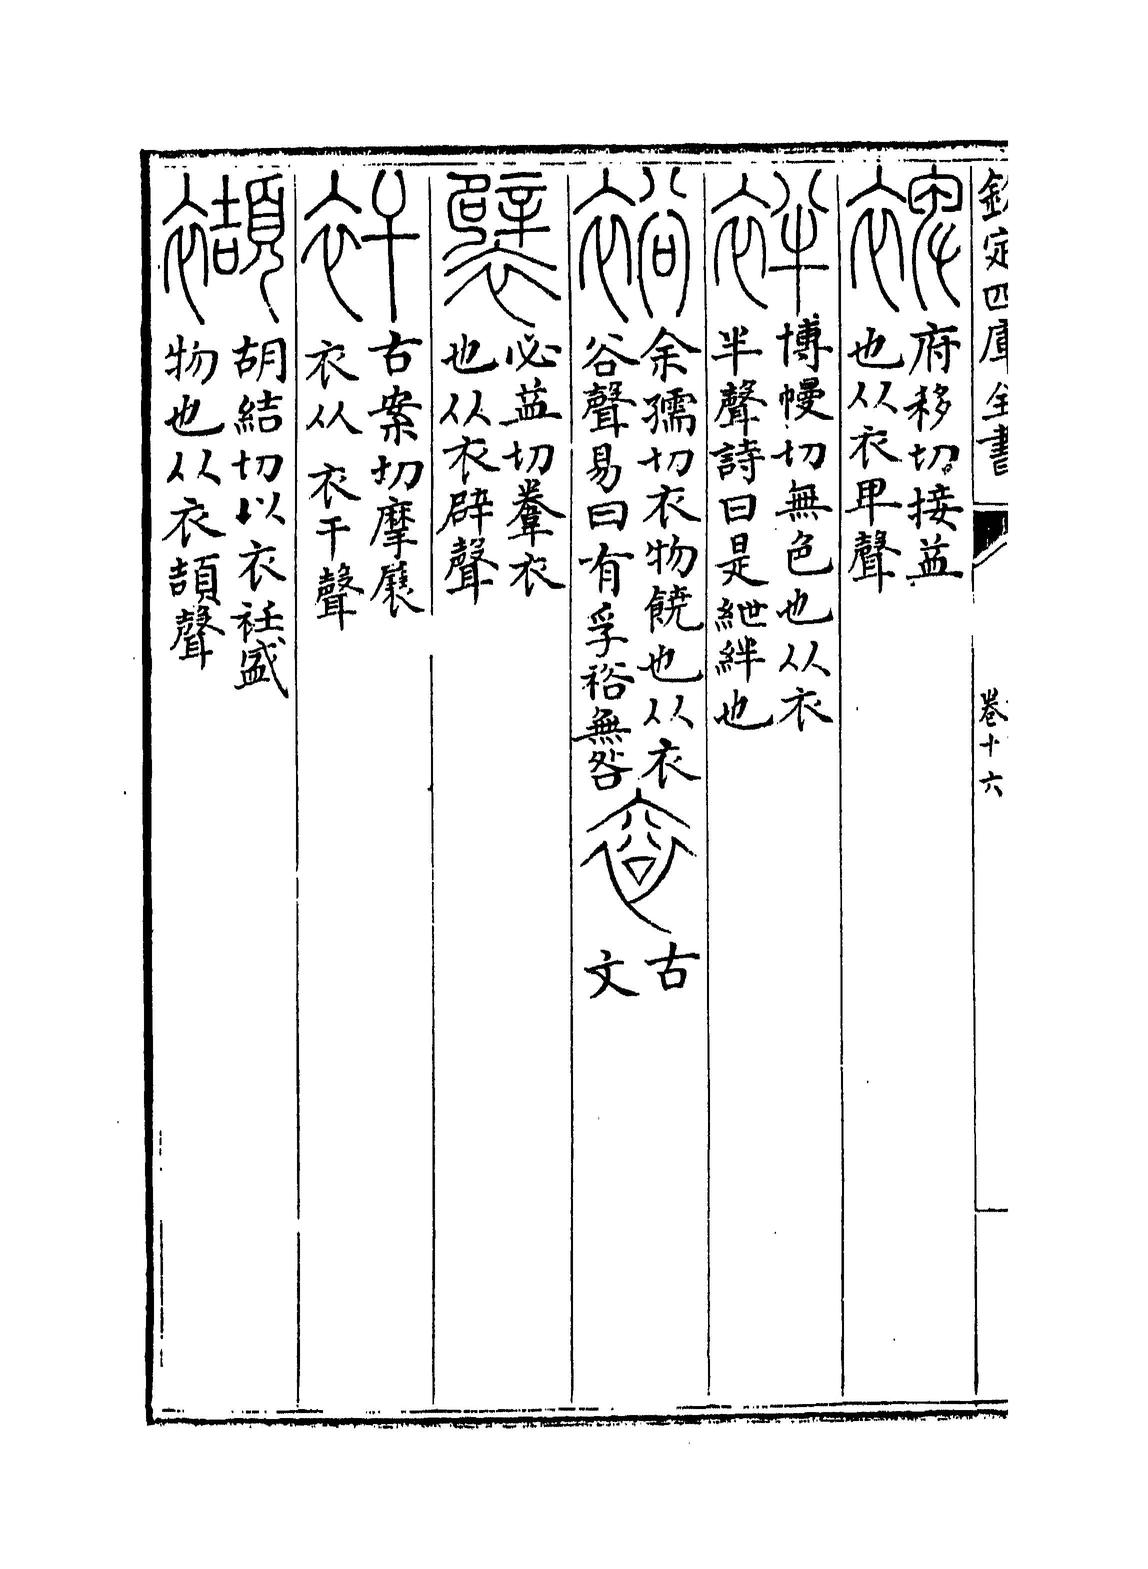 欽定四庫全書 卷十六
裨 府移切接益
也从衣卑聲
袢 博幔切無色也从衣
半聲詩曰是紲絆也
裕 余孺切衣物饒也从衣
谷聲易曰有孚裕無咎
古
文
襞 必益切韏衣
也从衣辟聲
衦 古案切摩展
衣从 衣干聲
襭 胡結切以衣衽盛
物也从衣頡聲